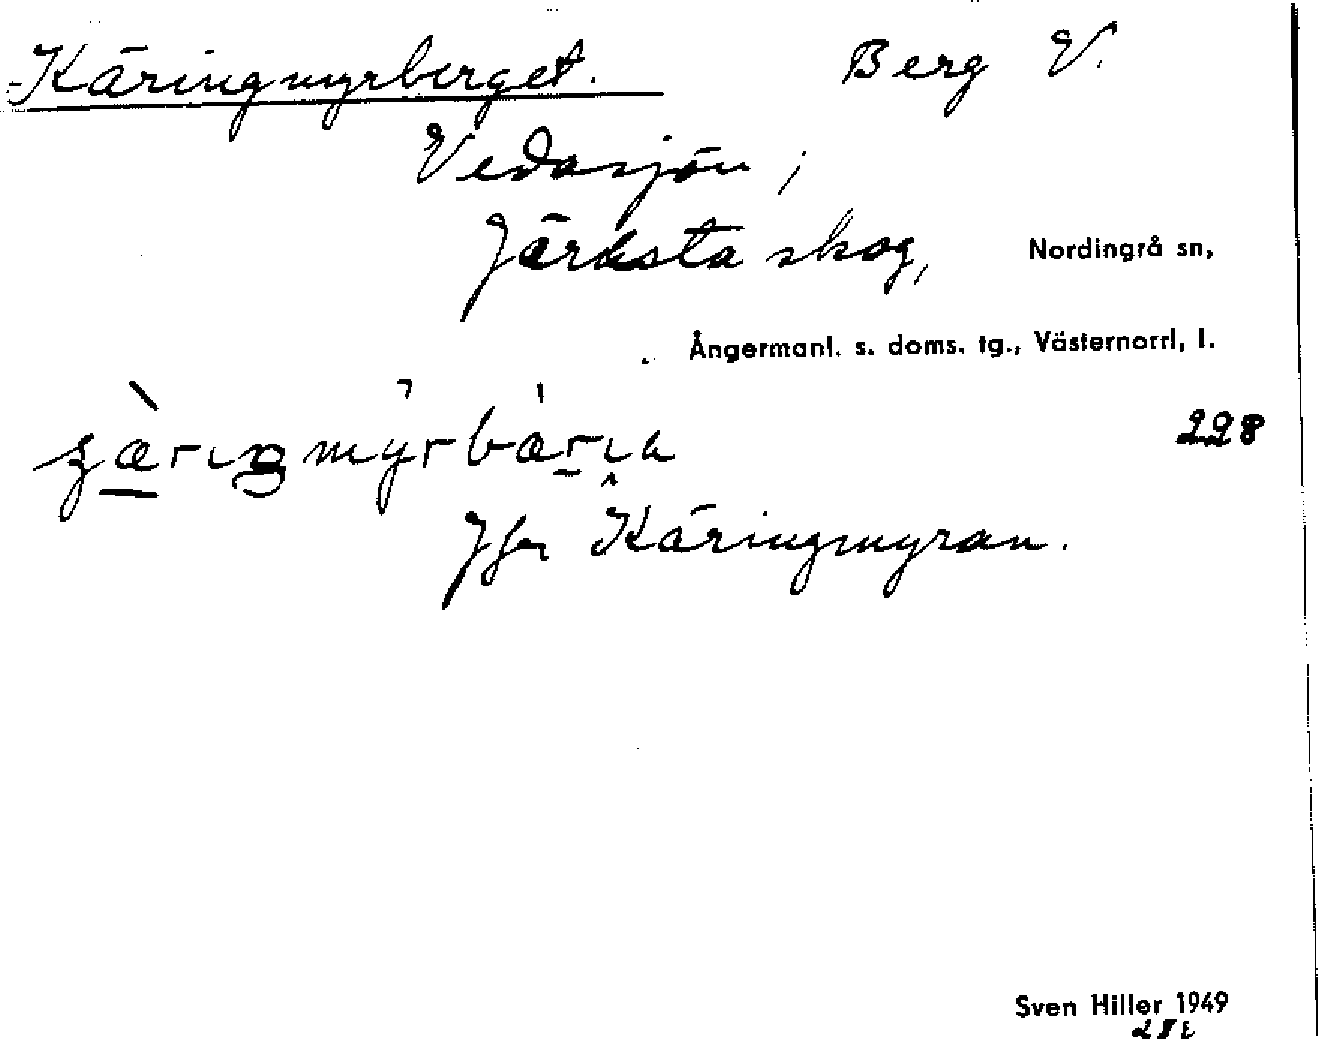 Käringmyrberget. Berg V.
Vedasjön,
Järesta skog, Nordingrå sn,
Ångermanl. s. doms. tg., Västernorrl, l.
228
Jfr Käringmyran.
Sven Hiller 1949